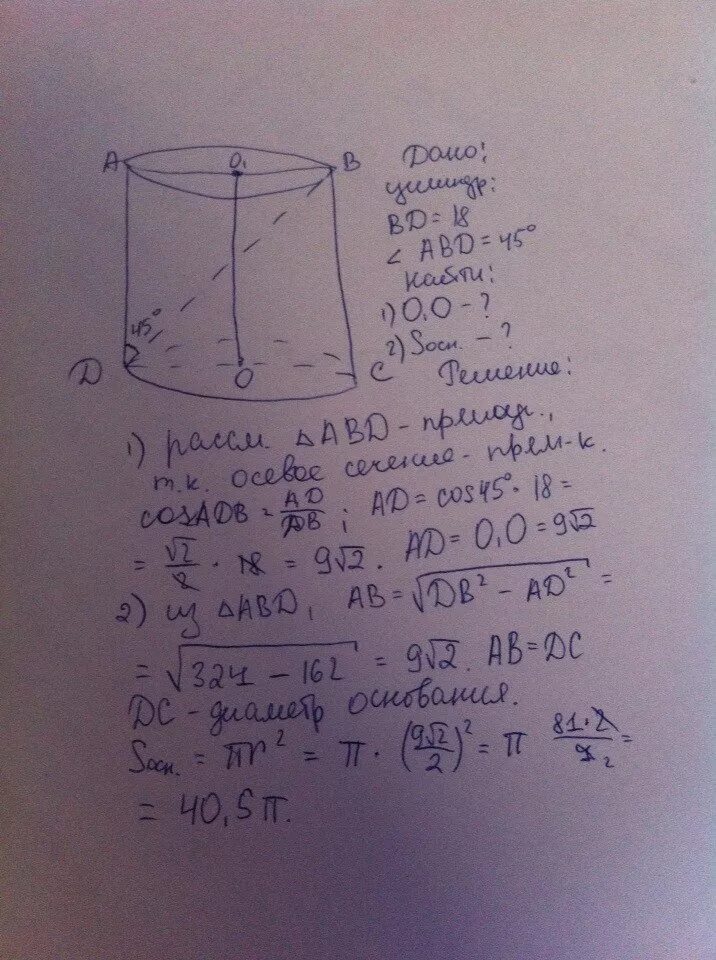 A O₁ B
45°
D O C
Дано:
цилиндр:
BD = 18
∠ ABD = 45°
Найти:
1) O₁O - ?
2) Sосн. - ?
Решение:
1) рассм △ABD - прямоуг.,
т.к. осевое сечение - прям-к.
cos ADB = AD/DB ; AD = cos45° · 18 =
= √2/2 · 18 = 9√2. AD = O₁O = 9√2
2) из △ABD, AB = √(DB² - AD²) =
= √(324 - 162) = 9√2. AB = DC
DC - диаметр основания.
Sосн. = πr² = π · (9√2/2)² = π 81·2/4 2 =
= 40,5π.